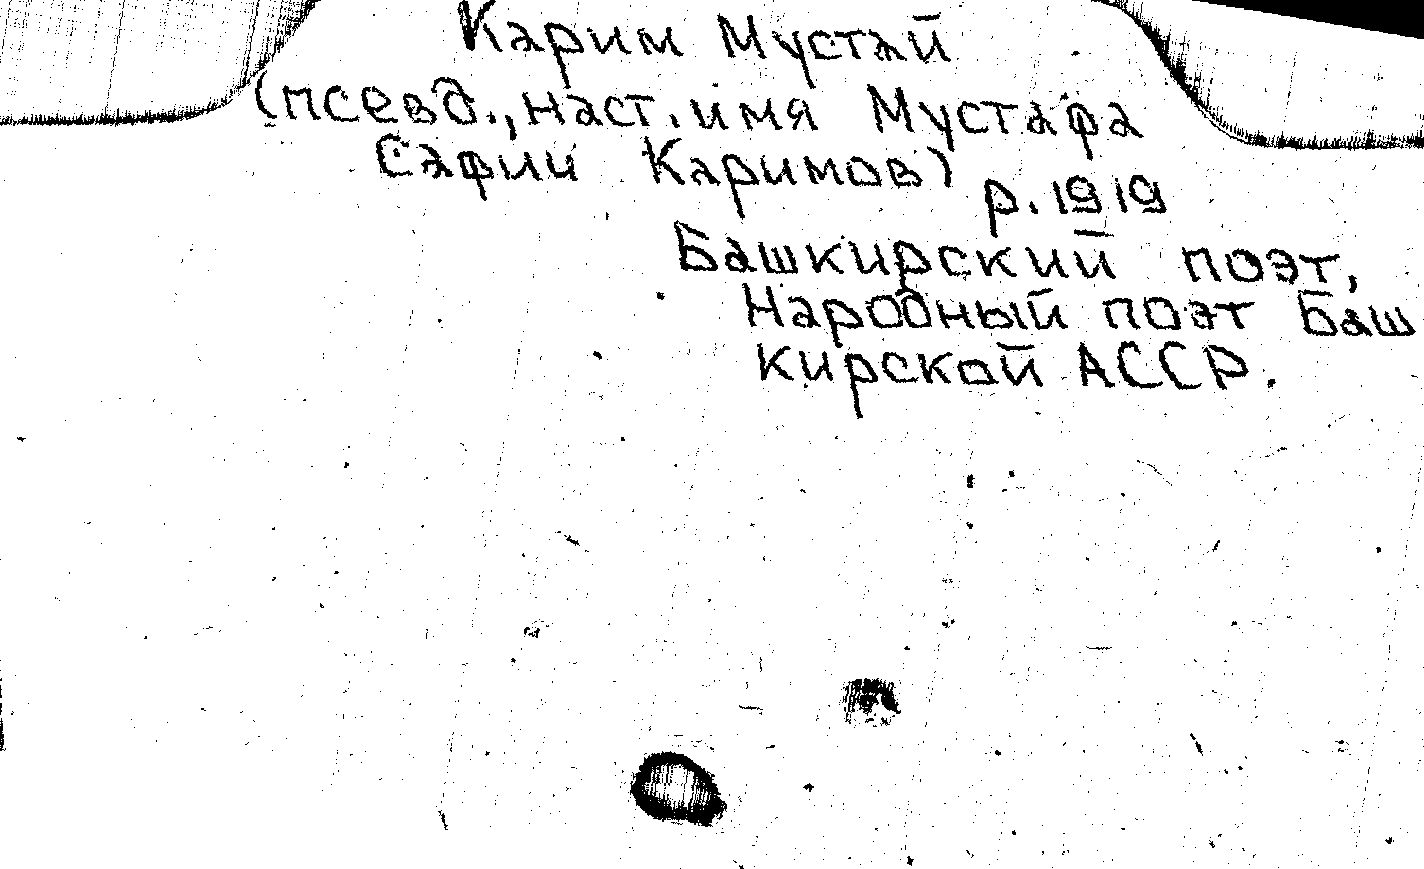 Карим Мустай
(псевд., наст. имя Мустафа
Сафии Каримов)
р. 1919
Башкирский поэт,
Народный поэт Баш
кирской АССР.